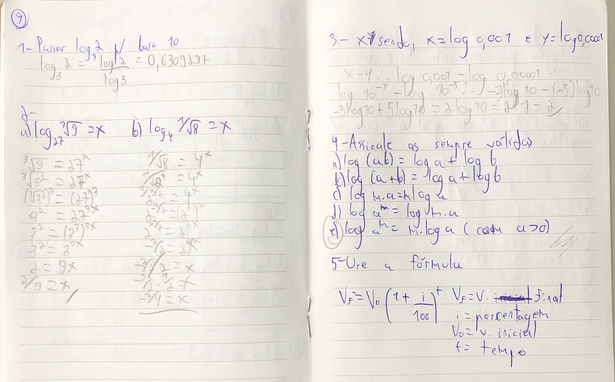 9
1- Passar log 2 p/ base 10
log₃ 2 = log 2 / log 3 = 0,6309297
2-
a) log₂₇ ³√9 = x b) log₄ ⁷√8 = x
³√9 = 27ˣ
³√3² = 27ˣ
2 = 9x
2/9 = x
-3/4 = x
3- x-y sendo, x = log 0,001 e y = log 0,00001
x - y ∴ log 0,001 - log 0,00001
log 10⁻³ - log 10⁻⁵ ∴ -3 log 10 - (-5) log 10
-3 log 10 + 5 log 10 = 2 log 10 = 2 . 1 = 2
4- Assinale as sempre válidas
a) log (ab) = log a + log b
b) log (a+b) = log a + log b
c) log m.a = m log a
d) log aᵐ = log m.a
e) log aᵐ = m. log a (com a>0)
5- Use a fórmula
V_F = V₀ (1 + i/100)ᵗ V_F = V. final
i = porcentagem
V₀ = v. inicial
t = tempo